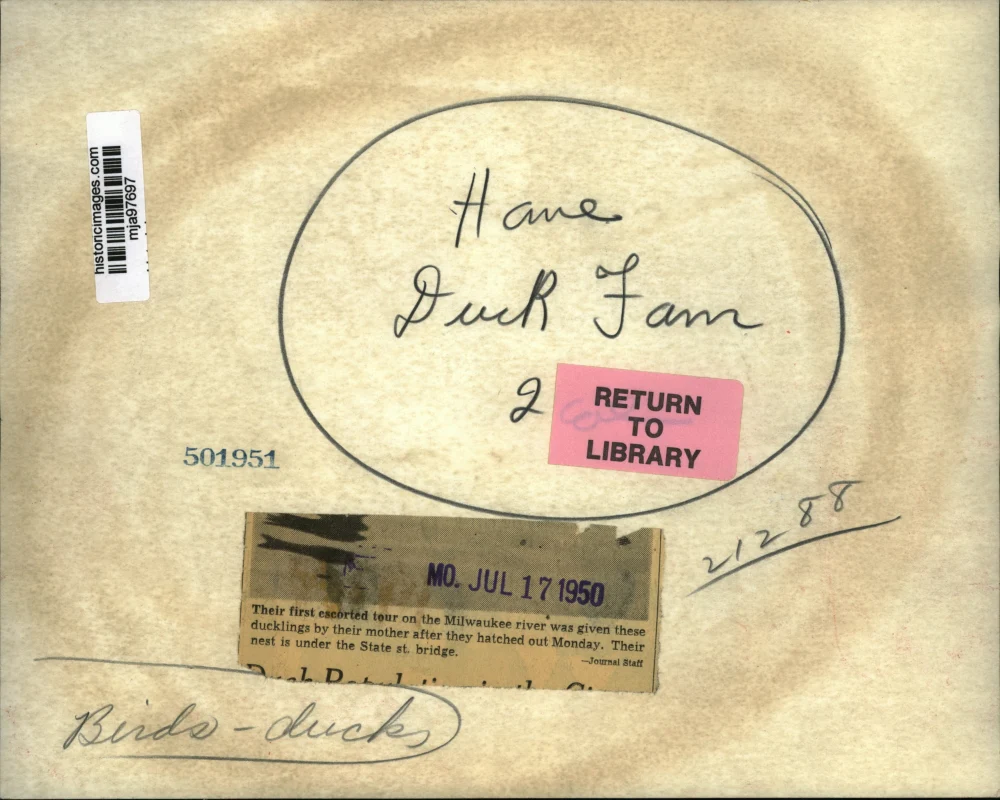 historicimages.com
mja97697
Hane
Duck Fam
2
RETURN
TO
LIBRARY
501951
21288
MO. JUL 17 1950
Their first escorted tour on the Milwaukee river was given these
ducklings by their mother after they hatched out Monday. Their
nest is under the State st. bridge.
—Journal Staff
Birds - ducks